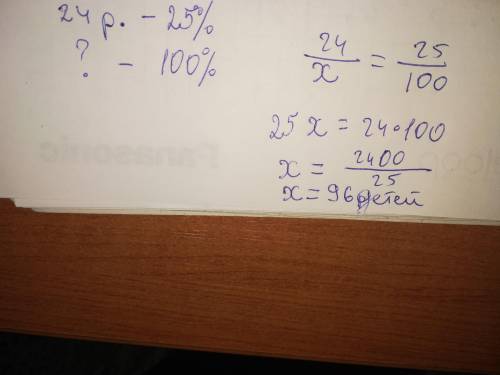 24 р. – 25%
? – 100%
24/x = 25/100
25x = 24•100
x = 2400/25
x = 96 детей
Panasonic